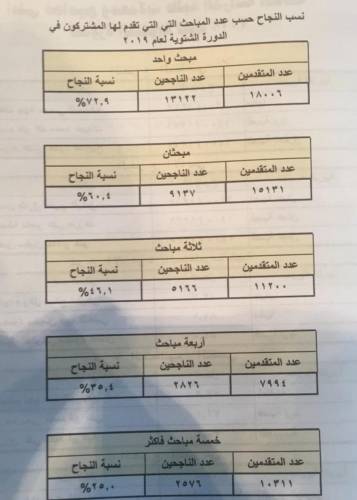 نسب النجاح حسب عدد المباحث التي التي تقدم لها المشتركون في
الدورة الشتوية لعام ٢٠١٩
مبحث واحد
عدد المتقدمين عدد الناجحين نسبة النجاح
١٨٠٠٦ ١٣١٢٢ ٧٢,٩%
مبحثان
عدد المتقدمين عدد الناجحين نسبة النجاح
١٥١٣١ ٩١٣٧ ٦٠,٤%
ثلاثة مباحث
عدد المتقدمين عدد الناجحين نسبة النجاح
١١٢٠٠ ٥١٦٦ ٤٦,١%
أربعة مباحث
عدد المتقدمين عدد الناجحين نسبة النجاح
٧٩٩٤ ٢٨٢٦ ٣٥,٤%
خمسة مباحث فأكثر
عدد المتقدمين عدد الناجحين نسبة النجاح
١٠٣١١ ٢٥٧٦ ٢٥,٠%